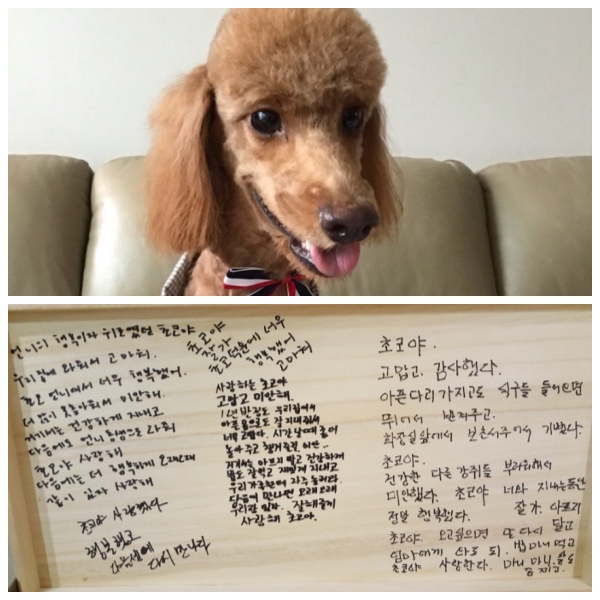 언니의 행복이자 위로였던 초코야
우리집에 와줘서 고마워.
초코 언니여서 너무 행복했어.
더 많이 못놀아줘서 미안해.
거기서는 건강하게 지내고
다음에도 언니 동생으로 와줘
초코야 사랑해
다음에는 더 행복하게 오래오래
같이 있자 사랑해
초코야 사랑한다
행복했고
다음생에 다시 만나자
초코야
잘가
초코덕분에 너무
행복했어
고마워
사랑하는 초코야
고맙고 미안해.
1년 반정도 우리집에서
아픈몸으로도 잘 지내줘서
너무 고맙다. 시간날때 좀더
놀아주고 챙겨줄걸 미안...
거기서는 아프지말고 건강하게
밥도 잘먹고 재밌게 지내고
우리가족한테 자주 놀러와
다음에 만나면 오래오래
우리랑 있자. 잘해줄게
사랑해 초코야.
초코야.
고맙고. 감사했다.
아픈다리 가지고도 식구들 들어오면
뛰어서 반겨주고.
화장실앞에서 보초서주어서 기뻤다.
초코야.
건강한 다른 강쥐들 부러워해서
미안했다. 초코야 너와 지내는동안
정말 행복했다. 잘가. 아프지
초코야. 오고싶으면 또 다시 말고
엄마에게 와도 되. 밥마니 먹고
초코야 사랑한다. 마니 마니.